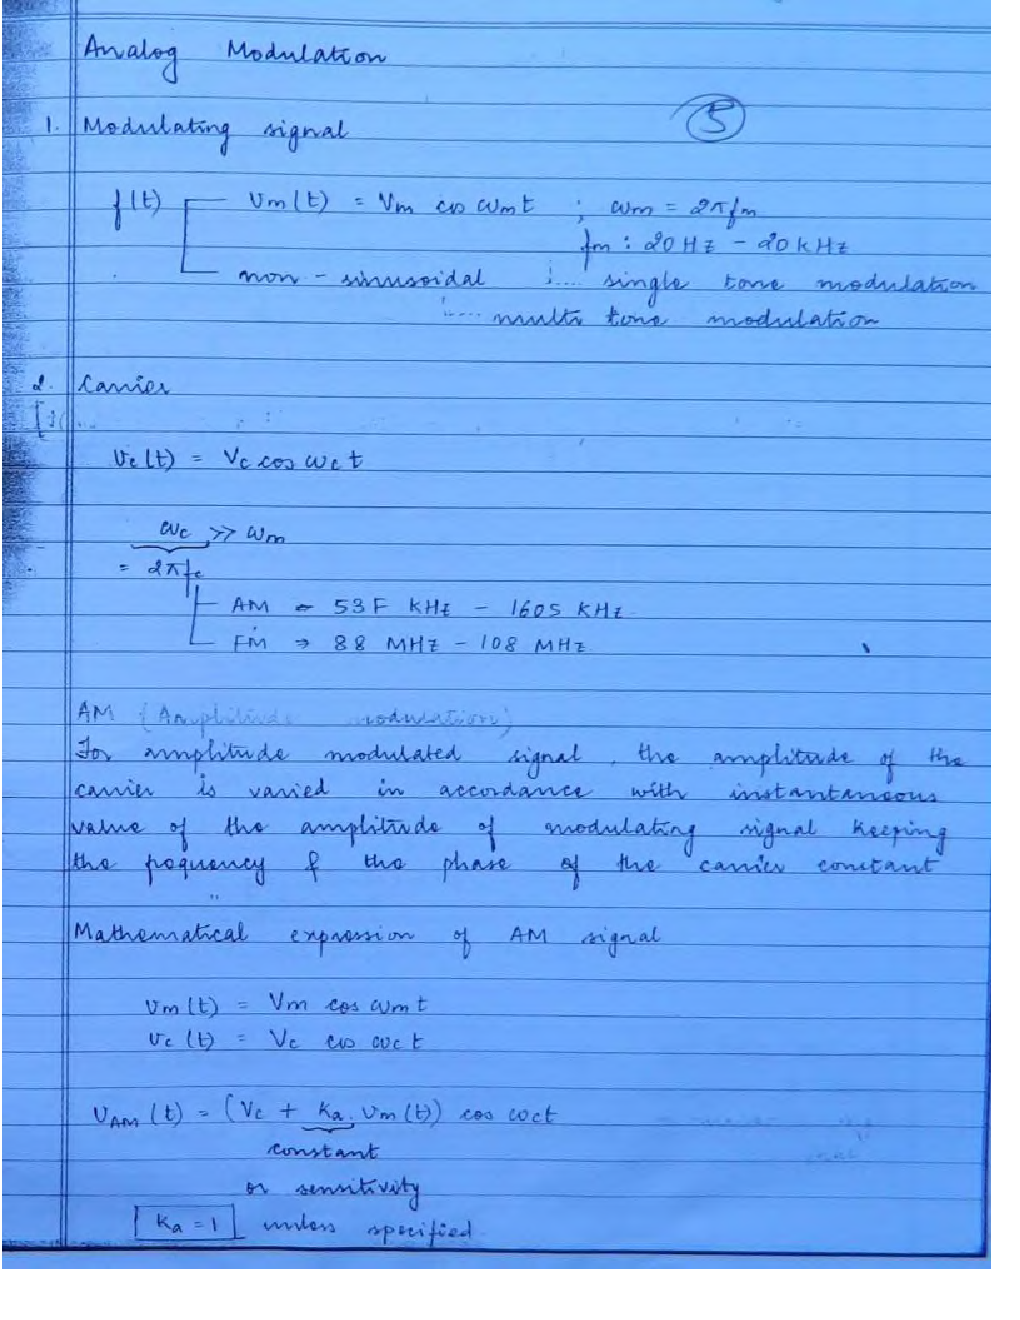 Analog Modulation
1. Modulating signal
5
f(t) vm(t) = Vm cos ωmt ; ωm = 2πfm
fm : 20 Hz - 20 kHz
non - sinusoidal : .... single tone modulation
..... multi tone modulation
2. Carrier
vc(t) = Vc cos ωct
ωc >> ωm
= 2πfc
AM → 53F KHz - 1605 KHz
FM → 88 MHz - 108 MHz
AM (Amplitude modulation)
For amplitude modulated signal, the amplitude of the
carrier is varied in accordance with instantaneous
value of the amplitude of modulating signal keeping
the frequency & the phase of the carrier constant
Mathematical expression of AM signal
vm(t) = Vm cos ωmt
vc(t) = Vc cos ωct
vAM(t) = (Vc + Ka. vm(t)) cos ωct
constant
or sensitivity
Ka = 1 unless specified